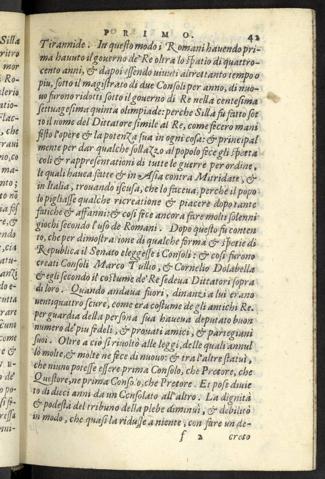 PRIMO. 42
Tirannide. In questo modo i Romani hauendo pri-
ma hauuto il gouerno de' Re oltra lo spatio di quattro-
cento anni, & dapoi essendo viuuti altrettanto tempo o
piu, sotto il magistrato di due Consoli per anno, di nuo-
uo furono ridotti sotto il gouerno di Re nella centesima
settuagesima quinta olimpiade: perche Silla fu fatto sot-
to il nome del Dittatore simile al Re, come fecero mani
festo l'opere & la potenza sua in ogni cosa: & principal
mente per dar qualche sollazzo al popolo fece gli spetta
coli & rappresentationi di tutte le guerre per ordine,
le quali haueua fatte & in Asia contro Mitridate, &
in Italia, trouando iscusa, che lo faceua, perche il popo
lo pigliasse qualche ricreatione & piacere dopo tante
fatiche & affanni: & cosi fece ancora fare molti solenni
giochi secondo l'uso de Romani. Dopo questo fu conten
to, che per dimostratione di qualche forma & spetie di
Republica il Senato eleggesse i Consoli: & cosi furono
creati Consoli Marco Tullio, & Cornelio Dolabella
& egli secondo il costume de' Re sedeua Dittatori sopra
di loro. Quando andaua fuori, dinanzi a lui erano
ventiquattro scure, come era costume de gli antichi Re.
per guardia della persona sua haueua deputato buon
numero de' piu fedeli, & prouati amici, & partegiani
suoi. Oltre a ciò si riuoltò alle leggi, delle quali annul
lò molte, & molte ne fece di nuouo: & tra l'altre statuì,
che niuno potesse essere prima Consolo, che Pretore, che
Questore, ne prima Consolo, che Pretore. Et pose diuie
to di dieci anni da un Consolato all'altro. La dignità
& podestà del tribuno della plebe diminuì, & debilitò
in modo, che quasi la ridusse a niente, con fare un de-
f 2 creto